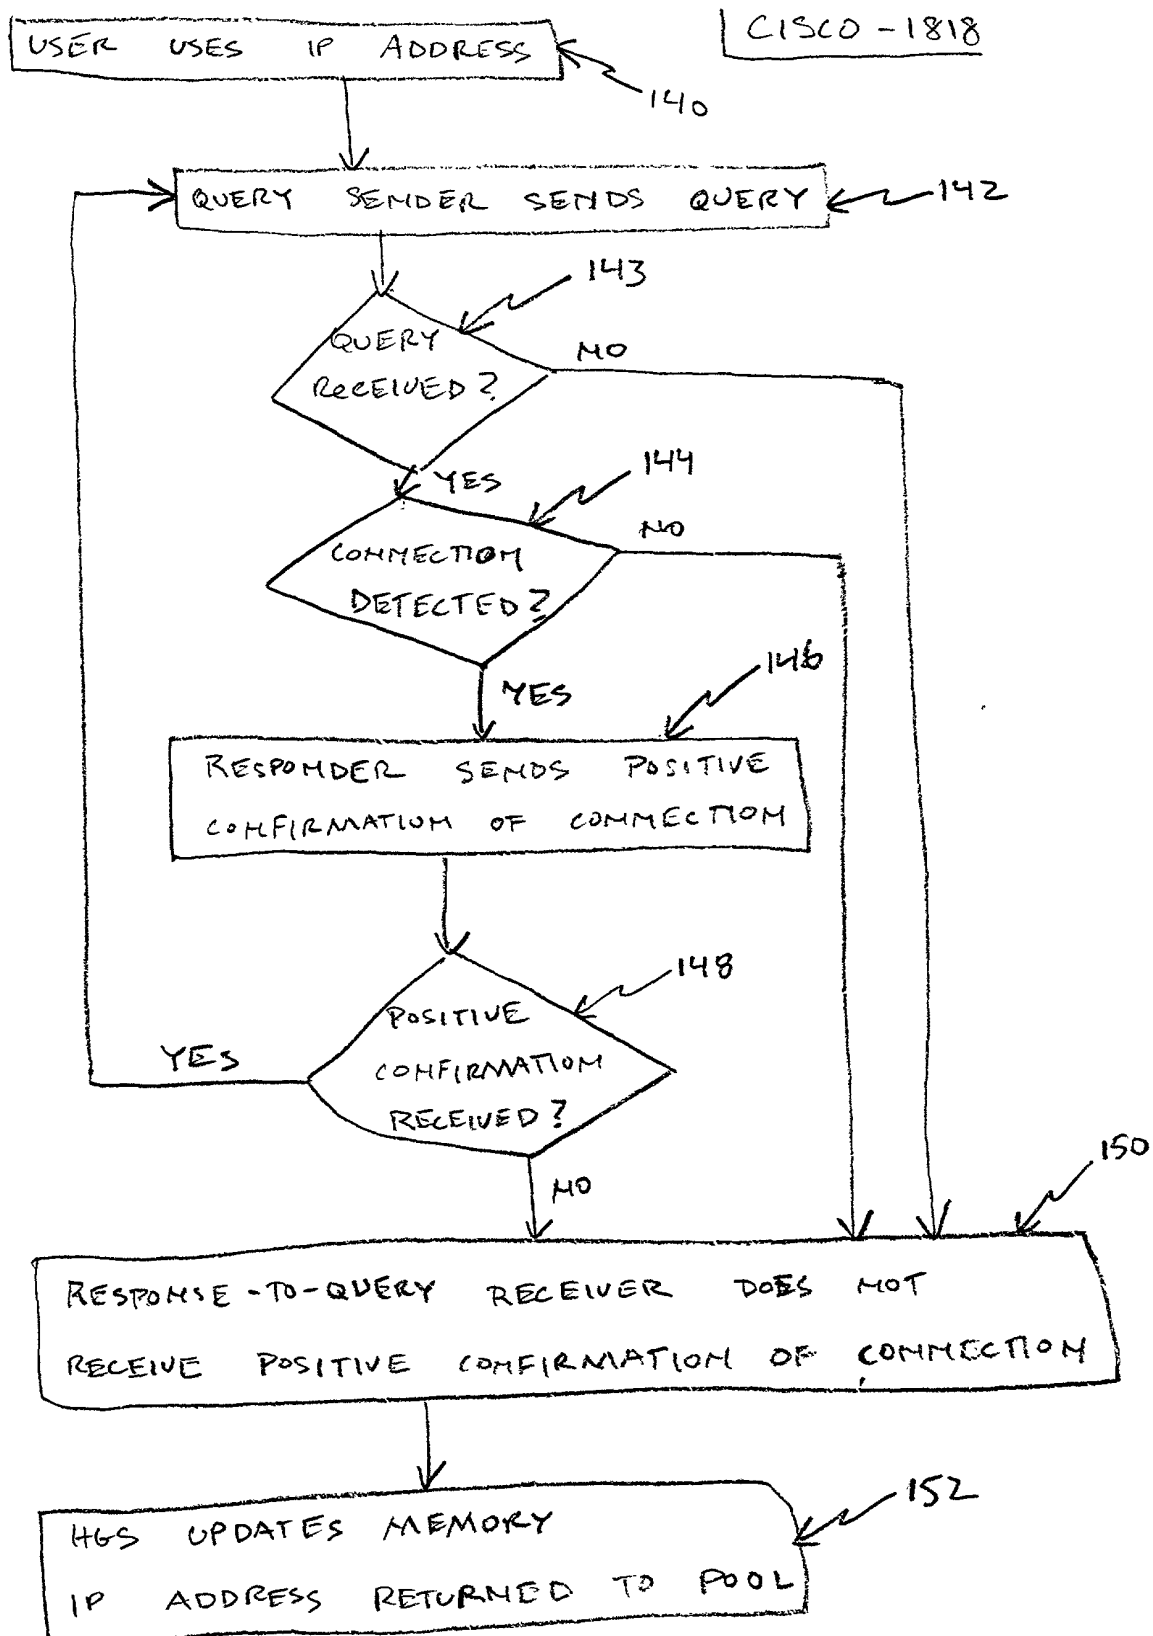 USER USES IP ADDRESS
CISCO-1818
140
QUERY SENDER SENDS QUERY
142
143
QUERY
RECEIVED?
NO
YES
144
CONNECTION
DETECTED?
NO
YES
146
RESPONDER SENDS POSITIVE
CONFIRMATION OF CONNECTION
148
POSITIVE
CONFIRMATION
RECEIVED?
YES
NO
150
RESPONSE-TO-QUERY RECEIVER DOES NOT
RECEIVE POSITIVE CONFIRMATION OF CONNECTION
152
HGS UPDATES MEMORY
IP ADDRESS RETURNED TO POOL